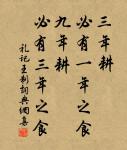 三年耕
必有一年之食
九年耕
必有三年之食
礼记王制词典网集